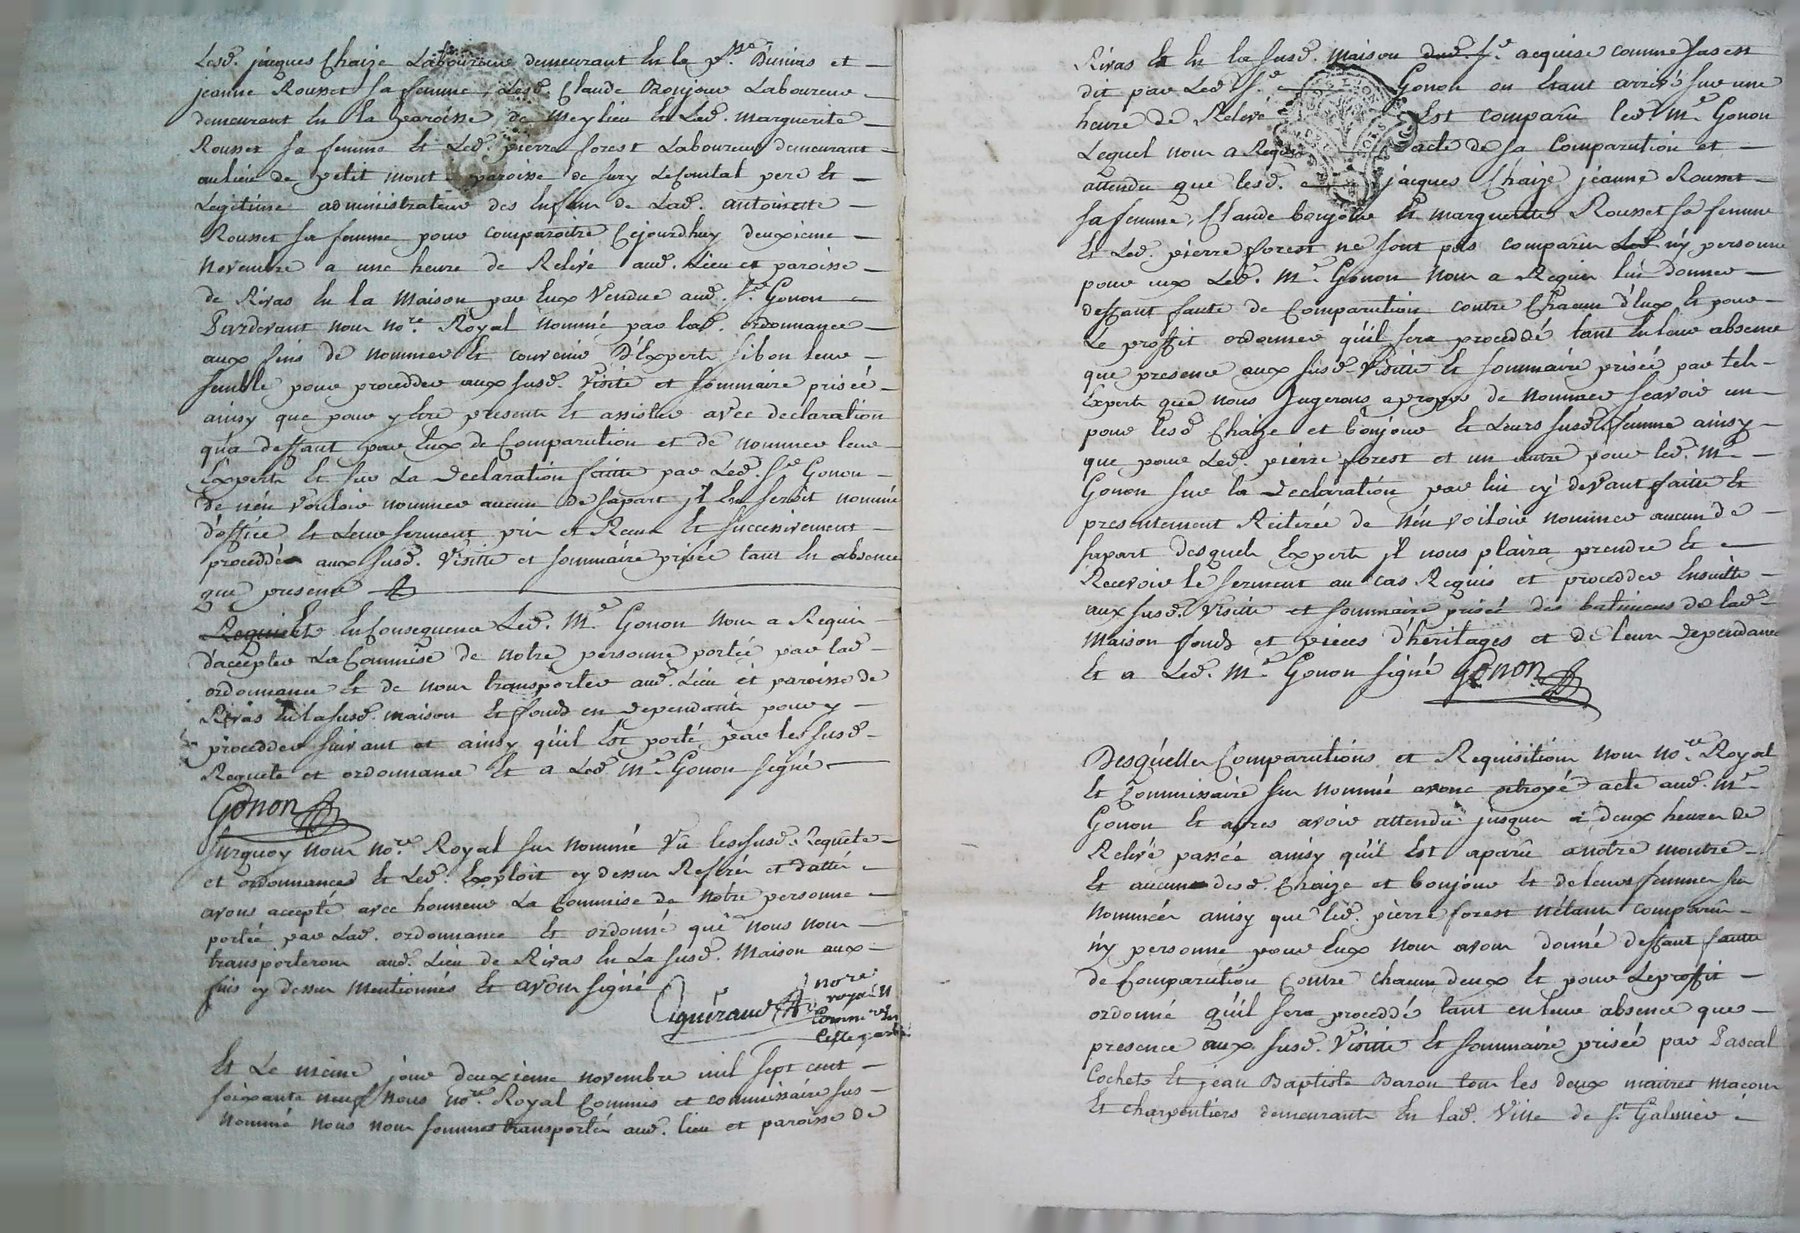 Lesd. jacques Chaize Laboureur demeurant en la p.sse Dunias et
jeanne Rousset sa femme, Lesd. Claude Bonjour Laboureur
demeurant en la paroisse de Meylieu et Lad. marguerite
Rousset sa femme et Led. pierre forest Laboureur demeurant
au lieu de petit mont paroisse de sury Le Comtal pere et
Legitime administrateur des Enfans de Lad. antoinette
Rousset sa femme pour comparoitre Cejourdhuy deuxieme
Novembre a une heure de Relevé aud. Lieu et paroisse
de Rivas En la Maison par Eux Vendue aud. Sr. Gonon
Pardevant nous no.re Royal nommé par lad. ordonnance
aux fins de nommer et convenir d'Experts si bon leur
semble pour procedder aux susd. Visité et sommaire prisée
ainsy que pour y Etre presents Et assister avec declaration
qua deffaut par Eux de Comparution et de nommer leur
Experts Et sur La declaration faitte par Led. Sr. Gonon
de n'en vouloir nommer aucun de sapart jl En seroit nommé
d'office Et Leur serment pris et Receu Et successivement
proceddé aux susd. Visitte et sommaire prisée tant En absence
que presence
Et En Consequence Led. Me. Gonon nous a Requis
d'accepter La Commise de notre personne portée par lad.
ordonnance Et de nous transporter aud. Lieu et paroisse de
Rivas En la susd. maison Et fonds en dependants pour y
procedder suivant et ainsy qu'il Est porté par les susd.
Requete et ordonnance Et a Led. Me. Gonon signé
Gonon
surquoy nous no.re Royal sus nommé Vû les susd. Requete
et ordonnance Et Led. Exploit cy dessus Refféré et datté
avons accepté avec honneur La Commise de Notre personne
portée par Lad. ordonnance Et ordonné que nous nous
transporterons aud. Lieu de Rivas En La susd. Maison aux
fins cy dessus Mentionnés Et avons signé
nore
royal
Et Le meme jour deuxieme novembre mil sept cent
soixante neuf nous no.re Royal Commis et commissaire sus
Nommé nous nous sommes transportés aud. lieu et paroisse de
Rivas En la susd. maison acquise comme sus est
dit par Led. Sr. Gonon ou Etant arrivé sur une
heure de Relevé Est comparû led. Me. Gonon
Lequel nous a Requis acte de sa Comparution et
attendu que lesd. jacques Chaize jeanne Rousset
sa femme, Claude bonjour Et marguerite Rousset sa femme
Et Led. pierre forest ne sont pas comparûs n'y personne
pour eux Led. Me. Gonon Nous a Requis lui donner
deffaut faute de Comparution contre Chacun d'Eux Et pour
Le proffit ordonner qu'il sera proceddé tant En leur absence
que presence aux susd. Visitte Et sommaire prisée par tels
Experts que nous jugerons apropos de Nommer scavoir un
pour lesd. Chaize et bonjour Et Leurs susd. femme ainsy
que pour Led. pierre forest et un autre pour led. Me.
Gonon sur la declaration par lui cy devant faitte Et
presentement Reiterée de n'en voiloir nommer aucun de
sapart desquels Experts jl nous plaira prendre Et
Recevoir le serment au cas Requis et procedder Ensuitte
aux susd. Visitte et sommaire prisée des batimens de lad.
Maison fonds et pieces d'heritages et de leurs dependance
Et a Led. Me. Gonon signé Gonon
Desquelles Comparutions et Requisition nous no.re Royal
Et Commissaire sus nommé avons otroyé acte aud. Me.
Gonon Et apres avoir attendu jusques à deux heures de
Relevé passée ainsy qu'il Est aparû a notre montre
Et aucuns desd. Chaize et bonjour Et de leurs femmes sus
Nommées ainsy que led. pierre forest n'étant comparûs
n'y personne pour Eux nous avons donné deffaut faute
de Comparution Contre chacun deux Et pour Le proffit
ordonné qu'il sera proceddé tant en leur absence que
presence aux susd. Visitte Et sommaire prisée par Pascal
Cochet Et jean Baptiste Baron tous les deux maitres macons
Et charpentiers demeurants En lad. Ville de St Galmier